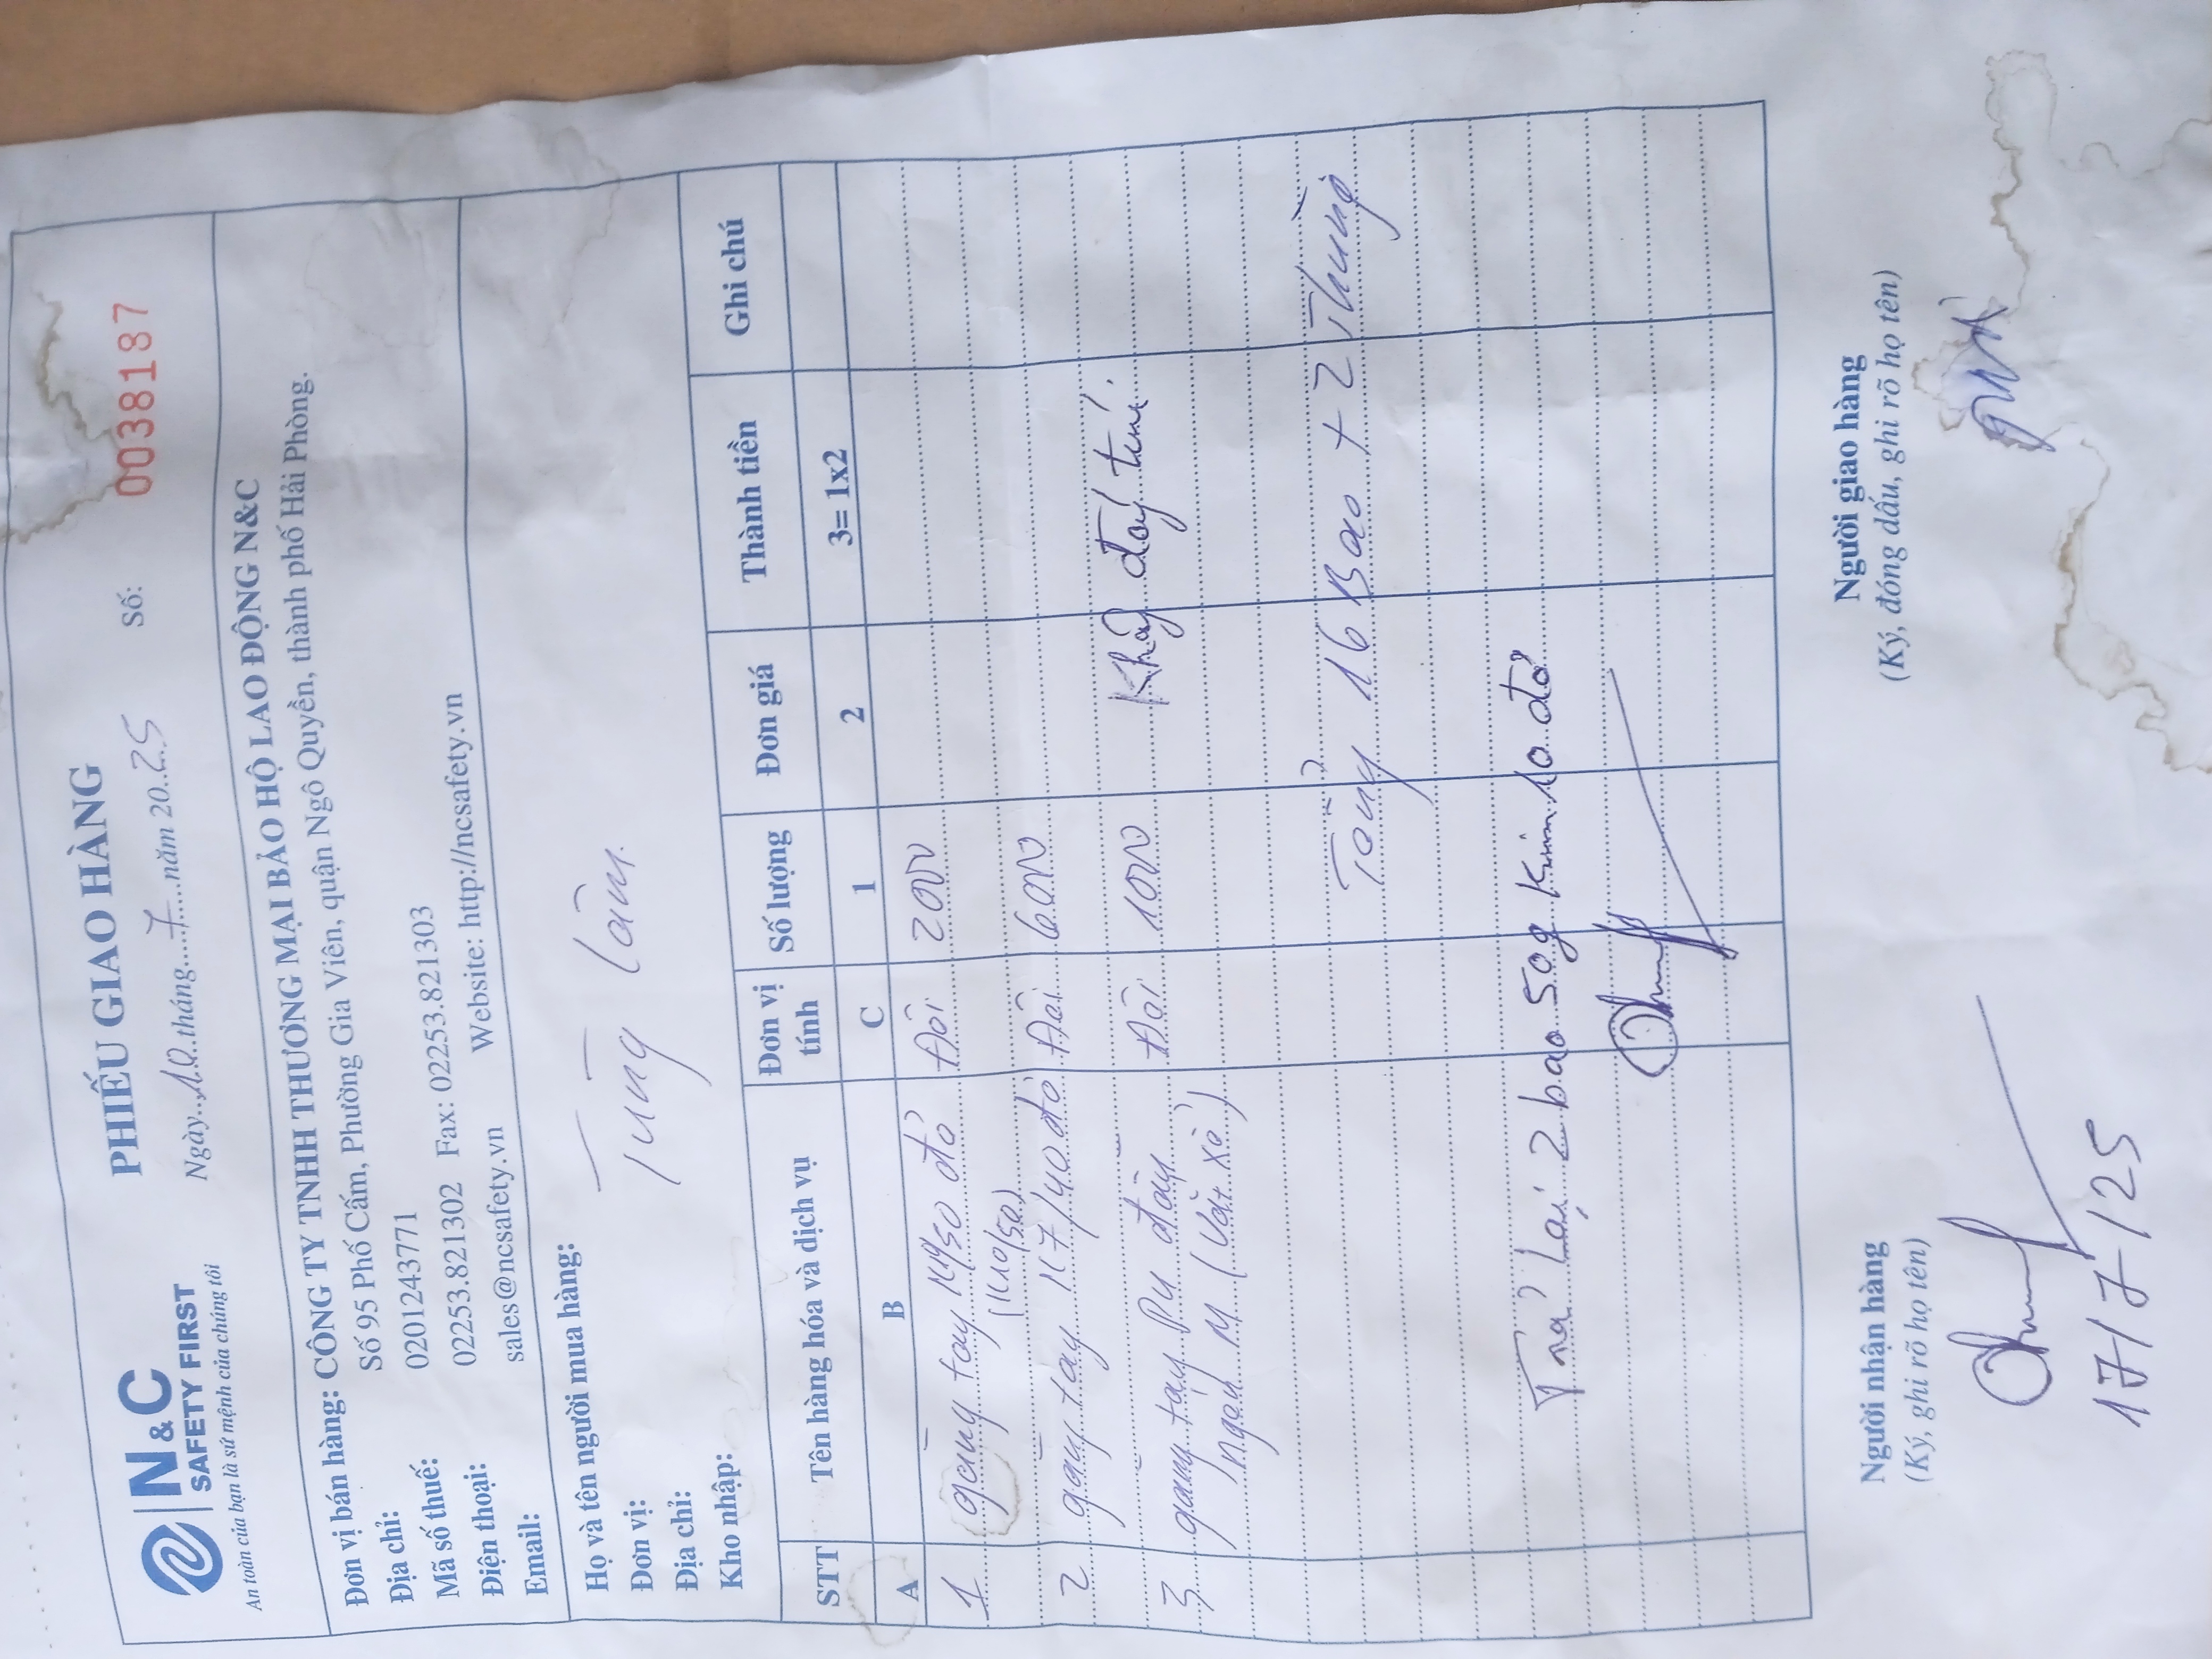 N&C
SAFETY FIRST
An toàn của bạn là sứ mệnh của chúng tôi
PHIẾU GIAO HÀNG
Ngày 10 tháng 7 năm 2025
Số: 0038187
Đơn vị bán hàng: CÔNG TY TNHH THƯƠNG MẠI BẢO HỘ LAO ĐỘNG N&C
Địa chỉ: Số 95 Phố Cấm, Phường Gia Viên, quận Ngô Quyền, thành phố Hải Phòng.
Mã số thuế: 0201243771
Điện thoại: 02253.821302 Fax: 02253.821303
Email: sales@ncsafety.vn Website: http://ncsafety.vn
Họ và tên người mua hàng:
Đơn vị: Tùng Lâm
Địa chỉ:
Kho nhập:
STT Tên hàng hóa và dịch vụ Đơn vị tính Số lượng Đơn giá Thành tiền Ghi chú
A B C 1 2 3= 1x2
1 găng tay 50 đỏ Đôi 2000
(K10/50)
2 găng tay K7/40 đỏ Đôi 6000
Khâu đáy túi.
3 găng tay PU Đôi 1000
ngón M (Vắt xổ)
Tổng 16 Bao + 2 Thùng
Trả lại 2 bao 50g Kim 10 đỏ
Người nhận hàng
(Ký, ghi rõ họ tên)
17/7/25
Người giao hàng
(Ký, đóng dấu, ghi rõ họ tên)